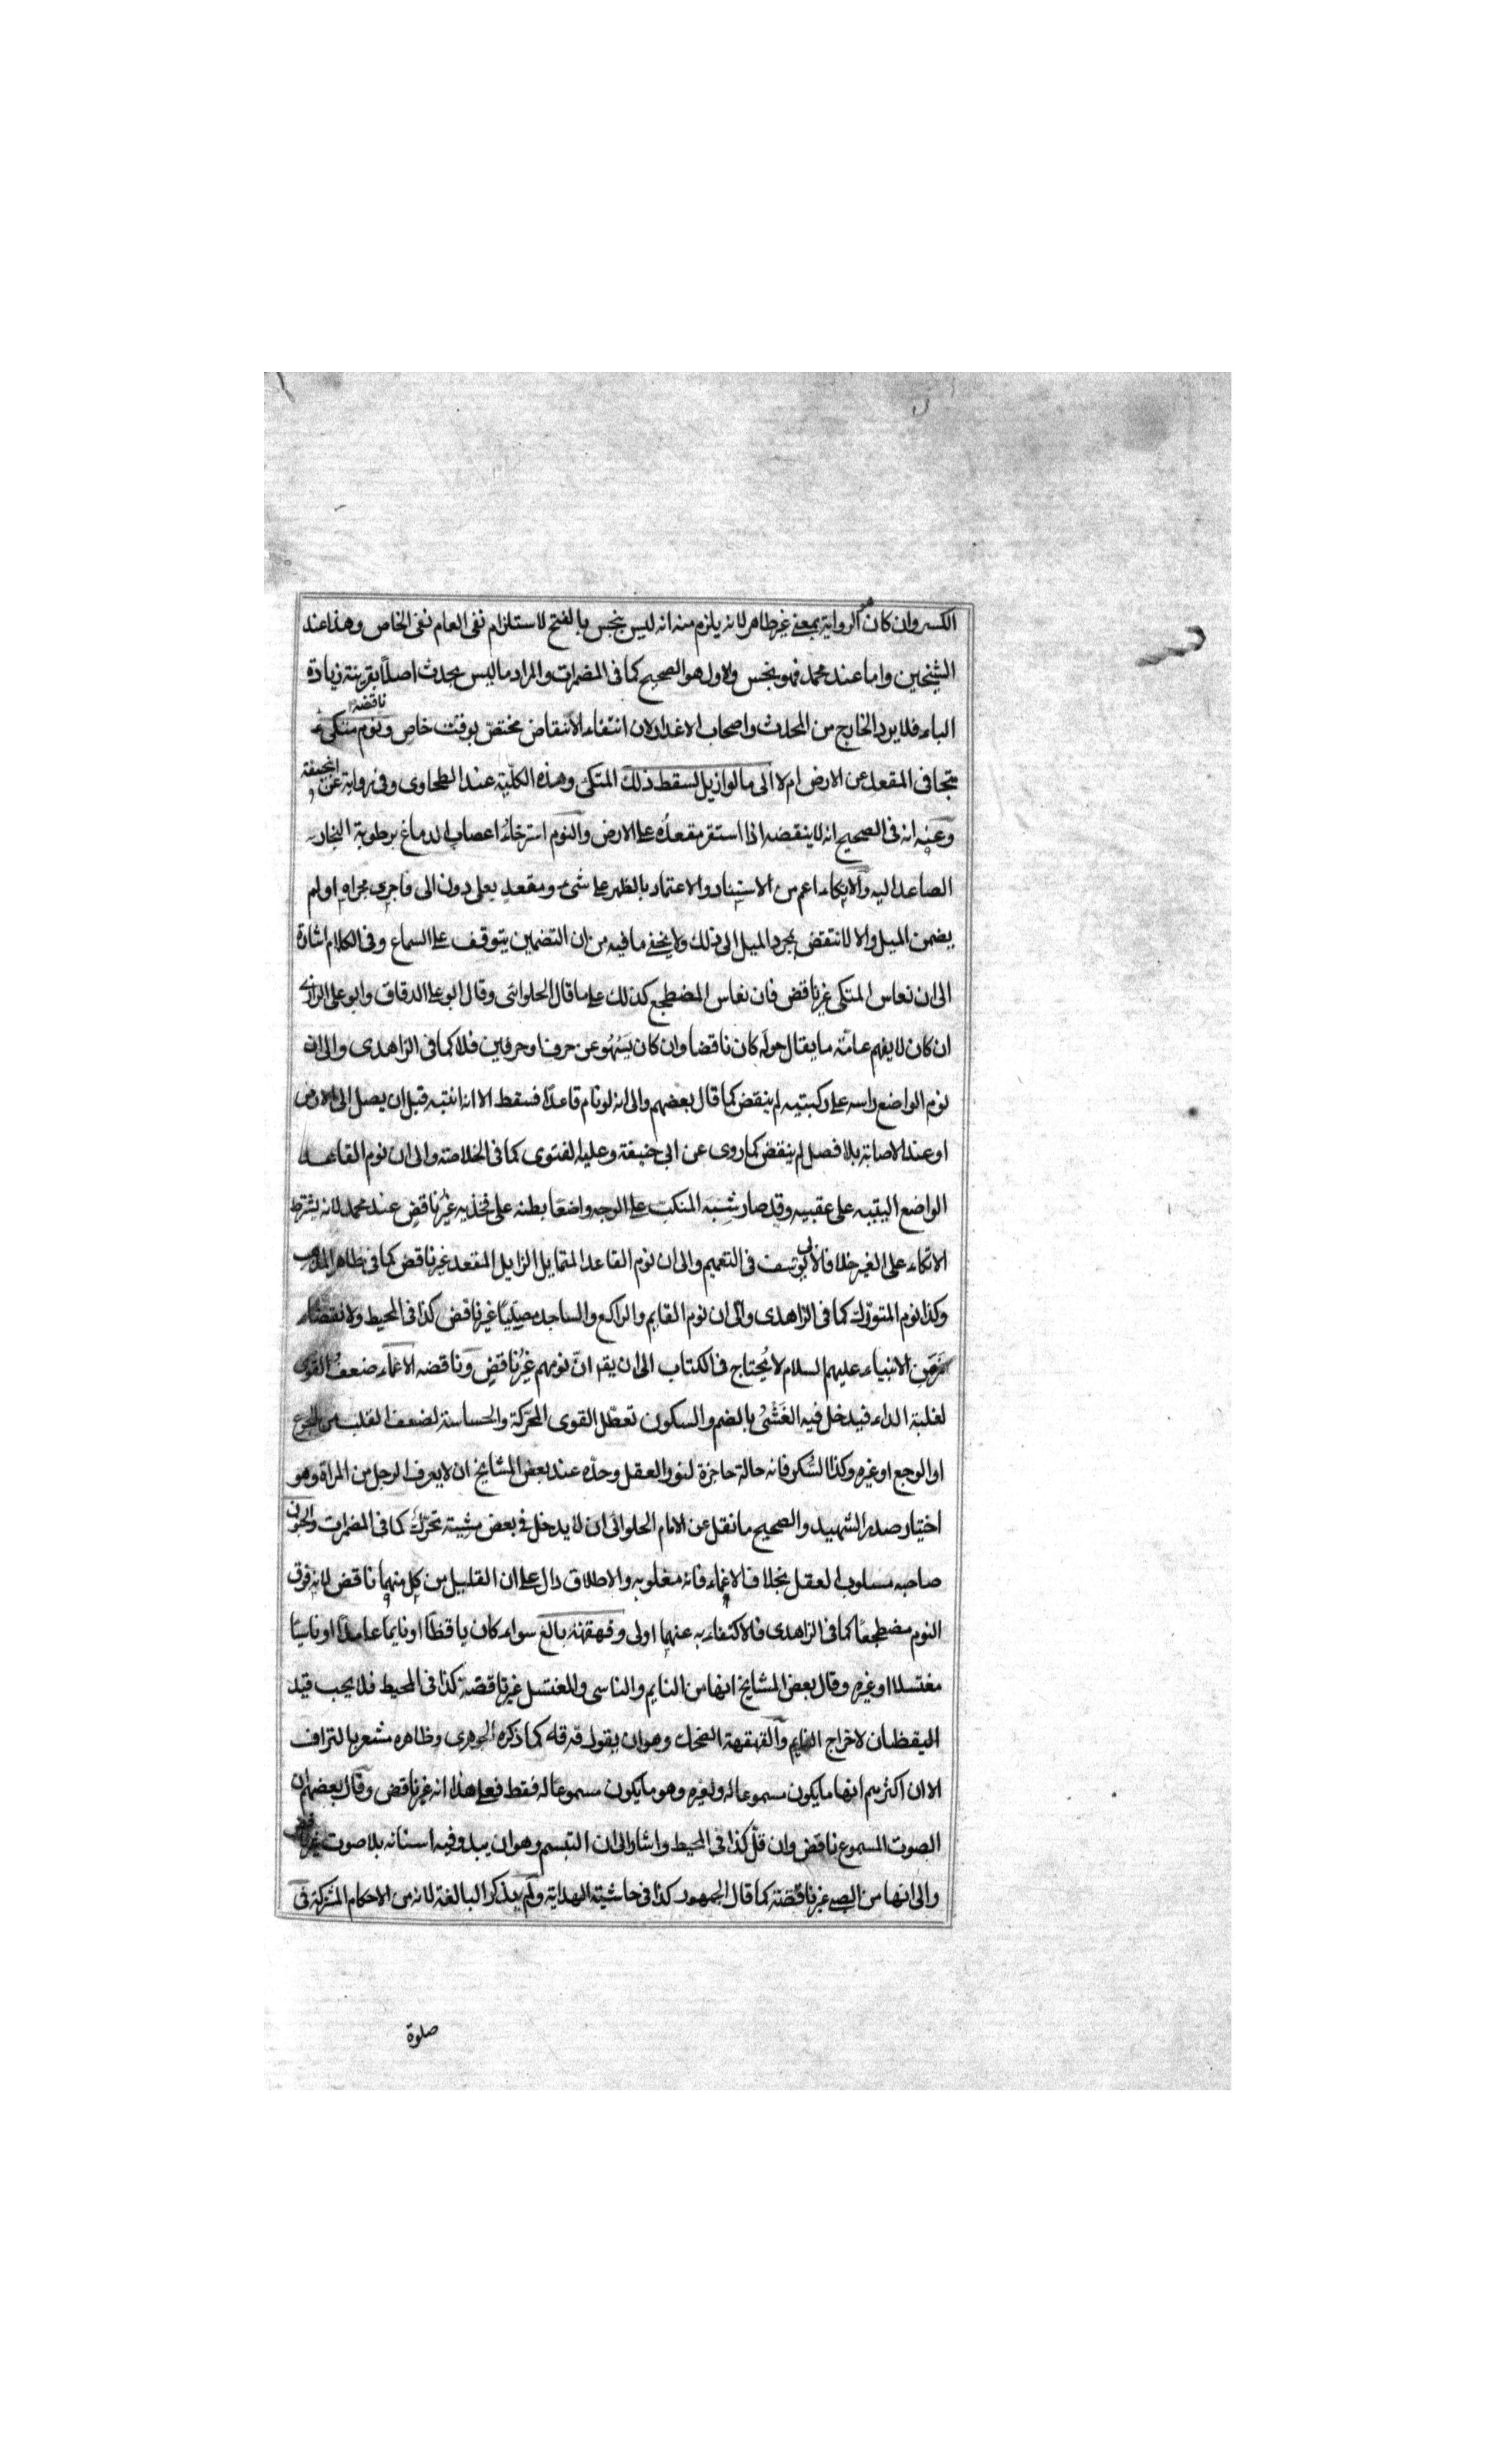 الكسر وان كان هو الرواية بمعنى غير ظاهر لانه يلزم منه انه ليس بنجس بالفتح لاستلزام نفى العام نفى الخاص وهذا عند
الشيخين واما عند محمد فهو بنجس والاول هو الصحيح كما فى المضمرات والمراد ما ليس بحدث اصلاً بقرينة زيادة
الباء فلا يرد الخارج من المحدث واصحاب الاعذار لان انتفاء الانتقاض مختص بوقت خاص وناقضه نوم متكئ
متجافى المقعد عن الارض ام لا الى ما لو ازيل لسقط ذلك المتكئ وهذه الكلية عند الطحاوى وفى رواية عن ابحنيفة
وعنه انه فى الصحيح انه لا ينقضه اذا استقر مقعده على الارض والنوم استرخاء اعصاب الدماغ برطوبة البخار
الصاعد اليه والاتكاء اعم من الاستناد والاعتماد بالظهر على شئ ومقعد يعلى دون الى فاجرى مجراه او لم
يضمن الميل والا لانتقض بمجرد الميل الى ذلك ولا يخفى ما فيه من ان التضمين يتوقف على السماع وفى الكلام اشارة
الى ان نعاس المتكى غير ناقض فان نعاس المضطجع كذلك على ما قال الحلوائى وقال ابو على الدقاق وابو على الرازى
ان كان لا يفهم عامّة ما يقال حوله كان ناقضا وان كان يَسْهُو عن حرف او حرفين فلا كما فى الزاهدى والى ان
نوم الواضع راسه على ركبتيه لم ينقض كما قال بعضهم والى انه لو نام قاعدًا فسقط الا انه انتبه قبل ان يصل الى الارض
او عند الاصابة بلا فصل لم ينقض كما روى عن ابى حنيفة وعليه الفتوى كما فى الخلاصة والى ان نوم القاعد
الواضع اليتيه على عقبيه وقد صار شبه المنكب على الوجه واضعا بطنه على فخذيه غير ناقض عند محمد لانه يشترط
الاتكاء على الغير خلافا لابى يوسف فى التعميم والى ان نوم القاعد المتمايل الزايل المقعد غير ناقض كما فى ظاهر المذهب
وكذا نوم المتورّك كما فى الزاهدى والى ان نوم القايم والراكع والساجد مصليًا غير ناقض كذا فى المحيط ولا نقضا
من الانبياء عليهم السلام لا يُحتاج فى الكتاب الى ان يقد انّ نومهم غيرُ ناقضٍ وناقضه الاغماء ضعفُ القوى
لغلبة الداء فيدخل فيه الغَشْىُ بالضم والسكون تعطّل القوى المحرّكة والحساسة لضعف القلب من الجوع
او الوجع او غيره وكذا السُكر فانه حالة حاجزة لنور العقل وحدّه عند بعض المشايخ ان لا يعرف الرجل من المراة وهو
اختيار صدر الشهيد والصحيح ما نقل عن الامام الحلوائى ان لا يدخل فى بعض مشيته تحرّك كما فى المضمرات والجنون
صاحبه مسلوب العقل بخلاف الاغماء فانه مغلوبه والاطلاق دال على ان القليل من كل منهما ناقض لانه فوق
النوم مضطجعًا كما فى الزاهدى فالاكتفاء به عنهما اولى وقهقهة بالغ سواء كان ياقظًا او نايمًا عامدًا او ناسيًا
مغتسلا او غيره وقال بعض المشايخ انها من النايم والناسى والمغتسل غير ناقضة كذا فى المحيط فلا يجب قيد
اليقظان لاخراج النايم والقهقهة الضحك وهو ان يقول قه قه كما ذكره الجوهرى وظاهره مشعر بالترادف
الا ان اكثرهم انها ما يكون مسموعا له ولغيره وهو ما يكون مسموعا له فقط فعلى هذا انه غير ناقض وقال بعضهم ان
الصوت المسموع ناقض وان قلّ كذا فى المحيط واشار الى ان التبسم وهو ان يبدو فيه اسنانه بلا صوت غير ناقض
والى انها من الصبى غير ناقضة كما قال الجمهور كذا فى حاشية الهداية ولم يذكر البالغة لانه من الاحكام المشتركة فى
صلوة